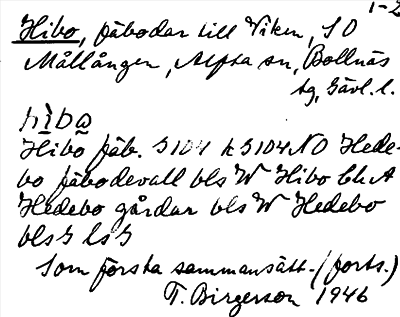 1-2
Hibo, fäbodar till Viken, SO
Mållången, Alfta sn, Bollnäs
tg, Gävl. l.
hìbo̲
Hibo fäb. G104 k G104 NO Hede-
bo fäbodevall bls W Hibo bk A
Hedebo gårdar bls W Hedebo
bls G ls G
Som första sammansätt. (forts.)
T. Birgerson 1946